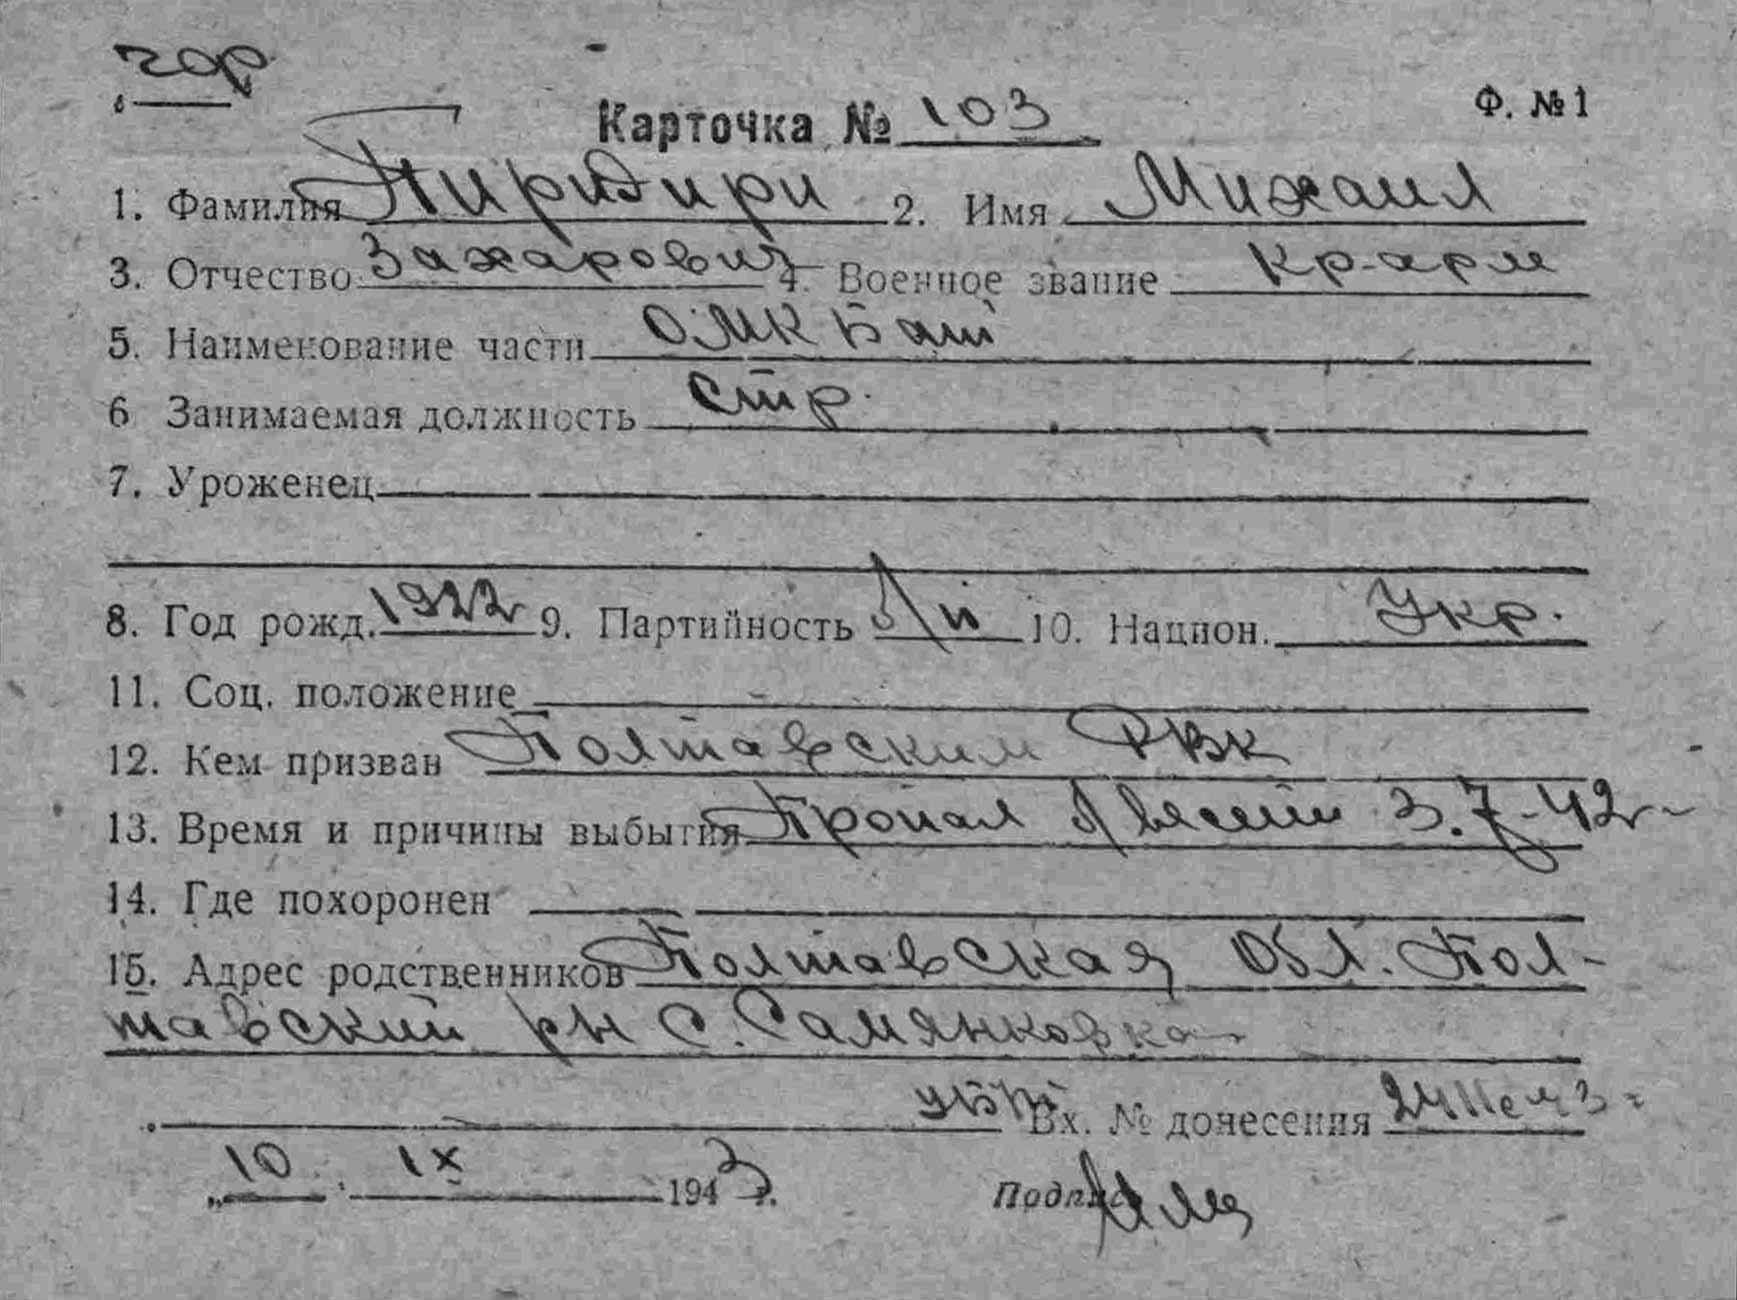 гор
Карточка № 103 Ф. №1
1. Фамилия Пиридири 2. Имя Михаил
3. Отчество Захарович 4. Военное звание кр-арм
5. Наименование части ОМК Бат
6 Занимаемая должность стр.
7. Уроженец
8. Год рожд. 1922 9. Партийность 10. Национ. Укр.
11. Соц. положение
12. Кем призван Полтавским РВК
13. Время и причины выбытия Пропал 3.7-42г-
14. Где похоронен
15. Адрес родственников Полтавская обл. Пол-
тавский рн с. Самянковка
Вх. № донесения
„10 " IX 1943 г.
Подпись